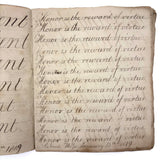 ent
ent
ent
ent
ent
1819
Honor is the reward of virtue
Honor is the reward of virtue
Honor is the reward of virtue
Honor is the reward of virtue
Honor is the reward of virtue
Honor is the reward of virtue
Honor is the reward of virtue
Honor is the reward of virtue
Honor is the reward of virtue
Honor is the reward of virtue
Honor is the reward of virtue
1819